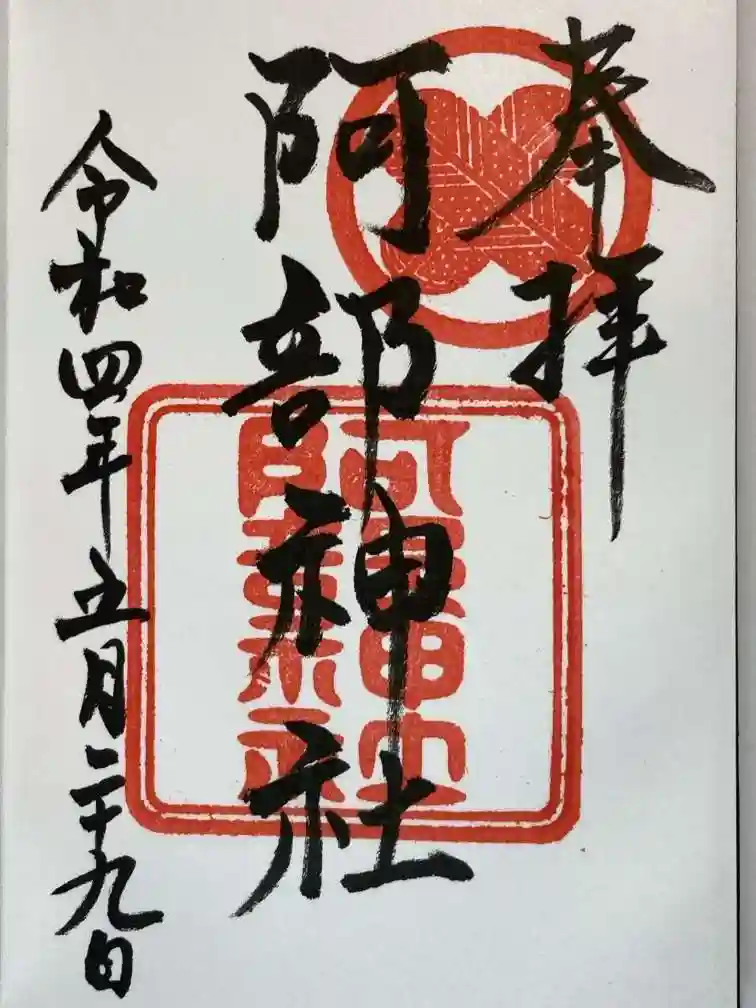 奉拝
阿部神社
令和四年五月二十九日